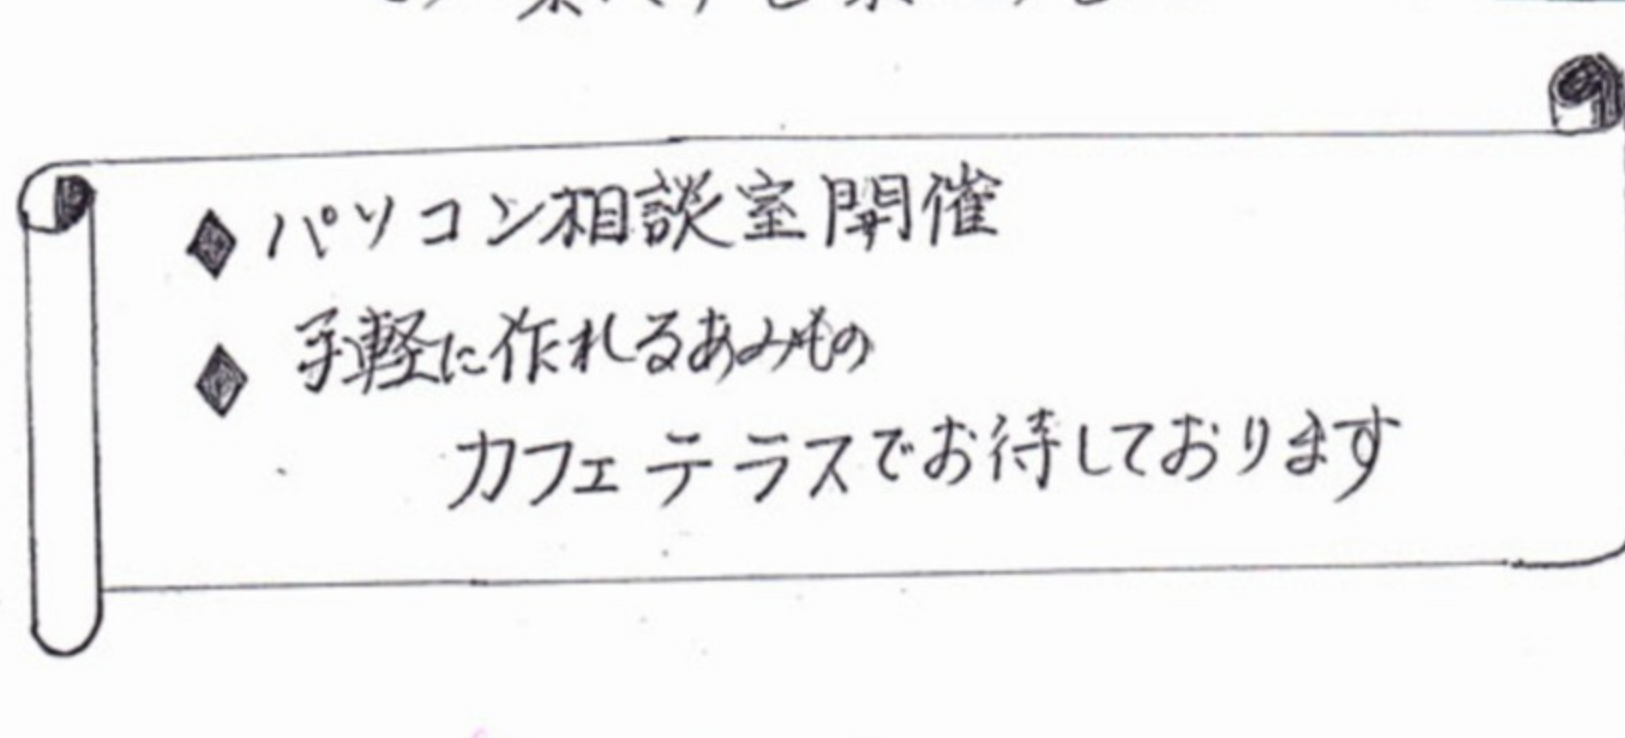 ◆ パソコン相談室開催
◆ 手軽に作れるあみもの
カフェテラスでお待しております